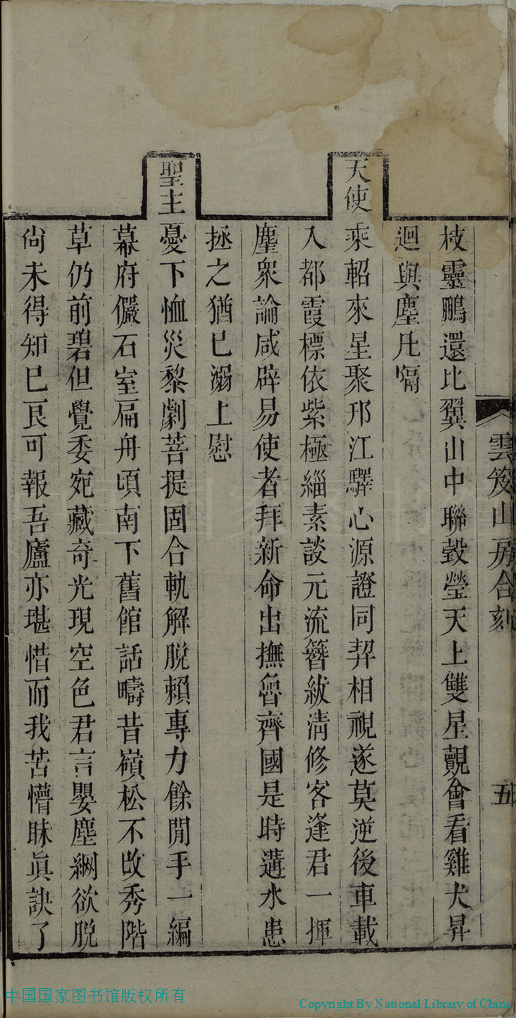 雲笈山房合刻
五
枝靈鵬還比翼山中聯瑴瑩天上雙星覿會看雞犬昇
迴與塵凡隔
天使乘軺來星聚邗江驛心源證同契相視遂莫逆後車載
入都霞標依紫極緇素談元流簪紱淸修客逢君一揮
麈衆論咸辟易使者拜新命出撫魯齊國是時遘水患
拯之猶已溺上慰
聖主憂下恤災黎劇菩提固合軌解脫賴專力餘閒手一編
幕府儼石室扁舟頃南下舊館話疇昔嶺松不改秀階
草仍前碧但覺委宛藏奇光現空色君言嬰塵網欲脫
尙未得知已良可報吾廬亦堪惜而我苦懵昧眞訣了
中国国家图书馆版权所有
Copyright By National Library of China